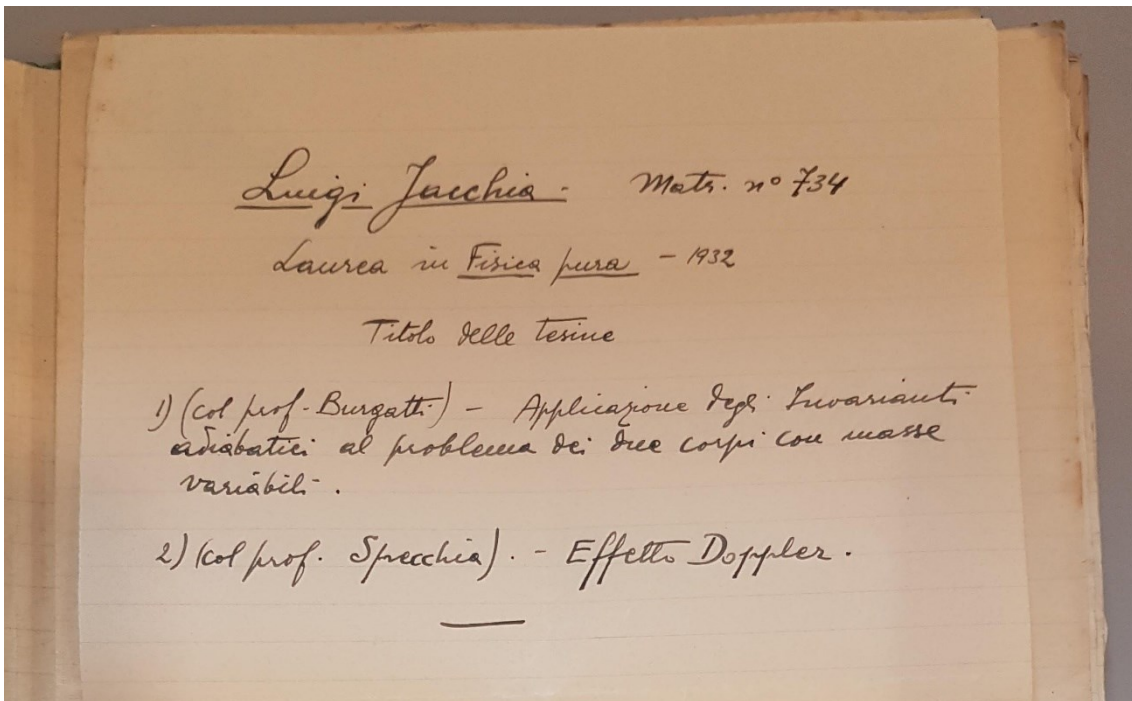 Luigi Jacchia. Matr. nº 734
Laurea in Fisica pura - 1932
Titolo delle tesine
1) (col prof. Burgatti) - Applicazione degli Invarianti
adiabatici al problema dei due corpi con masse
variabili.
2) (col prof. Specchia). - Effetto Doppler.